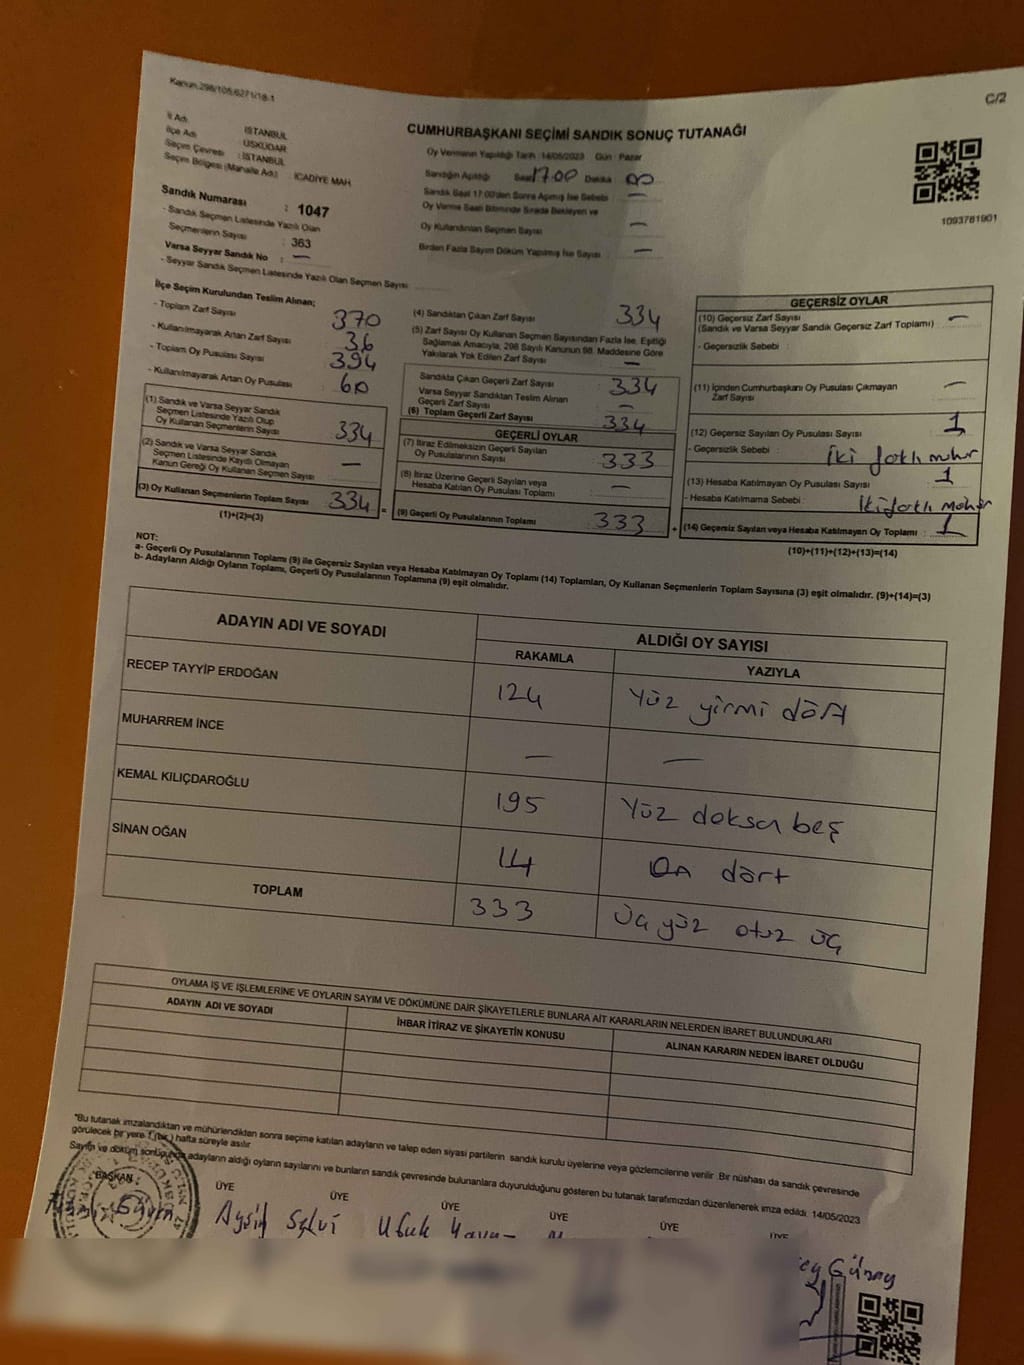 Kanun.298/105,6271/18-1
C/2
İl Adı : İSTANBUL
İlçe Adı : ÜSKÜDAR
Seçim Çevresi : İSTANBUL
Seçim Bölgesi (Mahalle Adı) : İCADİYE MAH
CUMHURBAŞKANI SEÇİMİ SANDIK SONUÇ TUTANAĞI
Oy Vermenin Yapıldığı Tarih :14/05/2023 Gün : Pazar
Sandığın Açıldığı Saat 17.00 Dakika 00
Sandık Saat 17:00'den Sonra Açılmış İse Sebebi : —
Oy Verme Saati Bitiminde Sırada Bekleyen ve
Oy Kullandırılan Seçmen Sayısı : —
Birden Fazla Sayım Döküm Yapılmış İse Sayısı : —
1093781901
Sandık Numarası : 1047
- Sandık Seçmen Listesinde Yazılı Olan
Seçmenlerin Sayısı : 363
Varsa Seyyar Sandık No : —
- Seyyar Sandık Seçmen Listesinde Yazılı Olan Seçmen Sayısı
İlçe Seçim Kurulundan Teslim Alınan;
- Toplam Zarf Sayısı : 370
- Kullanılmayarak Artan Zarf Sayısı : 36
- Toplam Oy Pusulası Sayısı : 394
- Kullanılmayarak Artan Oy Pusulası : 60
(1) Sandık ve Varsa Seyyar Sandık
Seçmen Listesinde Yazılı Olup
Oy Kullanan Seçmenlerin Sayısı : 334
(2) Sandık ve Varsa Seyyar Sandık
Seçmen Listesinde Kayıtlı Olmayan
Kanun Gereği Oy Kullanan Seçmen Sayısı : —
(3) Oy Kullanan Seçmenlerin Toplam Sayısı : 334
(1)+(2)=(3)
(4) Sandıktan Çıkan Zarf Sayısı : 334
(5) Zarf Sayısı Oy Kullanan Seçmen Sayısından Fazla İse, Eşitliği
Sağlamak Amacıyla, 298 Sayılı Kanunun 98. Maddesine Göre
Yakılarak Yok Edilen Zarf Sayısı : —
Sandıkta Çıkan Geçerli Zarf Sayısı : 334
Varsa Seyyar Sandıktan Teslim Alınan
Geçerli Zarf Sayısı : —
(6) Toplam Geçerli Zarf Sayısı : 334
GEÇERLİ OYLAR
(7) İtiraz Edilmeksizin Geçerli Sayılan
Oy Pusulalarının Sayısı : 333
(8) İtiraz Üzerine Geçerli Sayılan veya
Hesaba Katılan Oy Pusulası Toplamı : —
(9) Geçerli Oy Pusulalarının Toplamı : 333
GEÇERSİZ OYLAR
(10) Geçersiz Zarf Sayısı : —
(Sandık ve Varsa Seyyar Sandık Geçersiz Zarf Toplamı)
- Geçersizlik Sebebi :
(11) İçinden Cumhurbaşkanı Oy Pusulası Çıkmayan
Zarf Sayısı : —
(12) Geçersiz Sayılan Oy Pusulası Sayısı : 1
- Geçersizlik Sebebi : İki farklı mühür
(13) Hesaba Katılmayan Oy Pusulası Sayısı : 1
- Hesaba Katılmama Sebebi : İki farklı mühür
(14) Geçersiz Sayılan veya Hesaba Katılmayan Oy Toplamı : 1
(10)+(11)+(12)+(13)=(14)
NOT:
a- Geçerli Oy Pusulalarının Toplamı (9) ile Geçersiz Sayılan veya Hesaba Katılmayan Oy Toplamı (14) Toplamları, Oy Kullanan Seçmenlerin Toplam Sayısına (3) eşit olmalıdır. (9)+(14)=(3)
b- Adayların Aldığı Oyların Toplamı, Geçerli Oy Pusulalarının Toplamına (9) eşit olmalıdır.
ADAYIN ADI VE SOYADI
ALDIĞI OY SAYISI
RAKAMLA YAZIYLA
RECEP TAYYİP ERDOĞAN 124 Yüz yirmi dört
MUHARREM İNCE — —
KEMAL KILIÇDAROĞLU 195 Yüz doksan beş
SİNAN OĞAN 14 On dört
TOPLAM 333 Üç yüz otuz üç
OYLAMA İŞ VE İŞLEMLERİNE VE OYLARIN SAYIM VE DÖKÜMÜNE DAİR ŞİKAYETLERLE BUNLARA AİT KARARLARIN NELERDEN İBARET BULUNDUKLARI
ADAYIN ADI VE SOYADI İHBAR İTİRAZ VE ŞİKAYETİN KONUSU ALINAN KARARIN NEDEN İBARET OLDUĞU
"Bu tutanak imzalandıktan ve mühürlendikten sonra seçime katılan adayların ve talep eden siyasi partilerin sandık kurulu üyelerine veya gözlemcilerine verilir. Bir nüshası da sandık çevresinde
görülecek bir yere 1 (bir) hafta süreyle asılır.
Sayım ve döküm sonucunda adayların aldığı oyların sayılarını ve bunların sandık çevresinde bulunanlara duyurulduğunu gösteren bu tutanak tarafımızdan düzenlenerek imza edildi. 14/05/2023
BAŞKAN ÜYE ÜYE ÜYE ÜYE ÜYE ÜYE
Selvi Ufuk
Günay